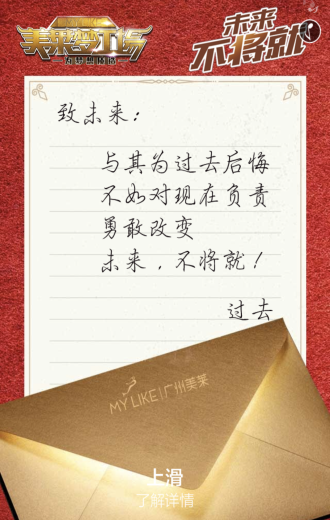 美莱梦工场
为梦想精造
未来
不将就
致未来：
与其为过去后悔
不如对现在负责
勇敢改变
未来，不将就！
过去
MYLIKE|广州美莱
上滑
了解详情